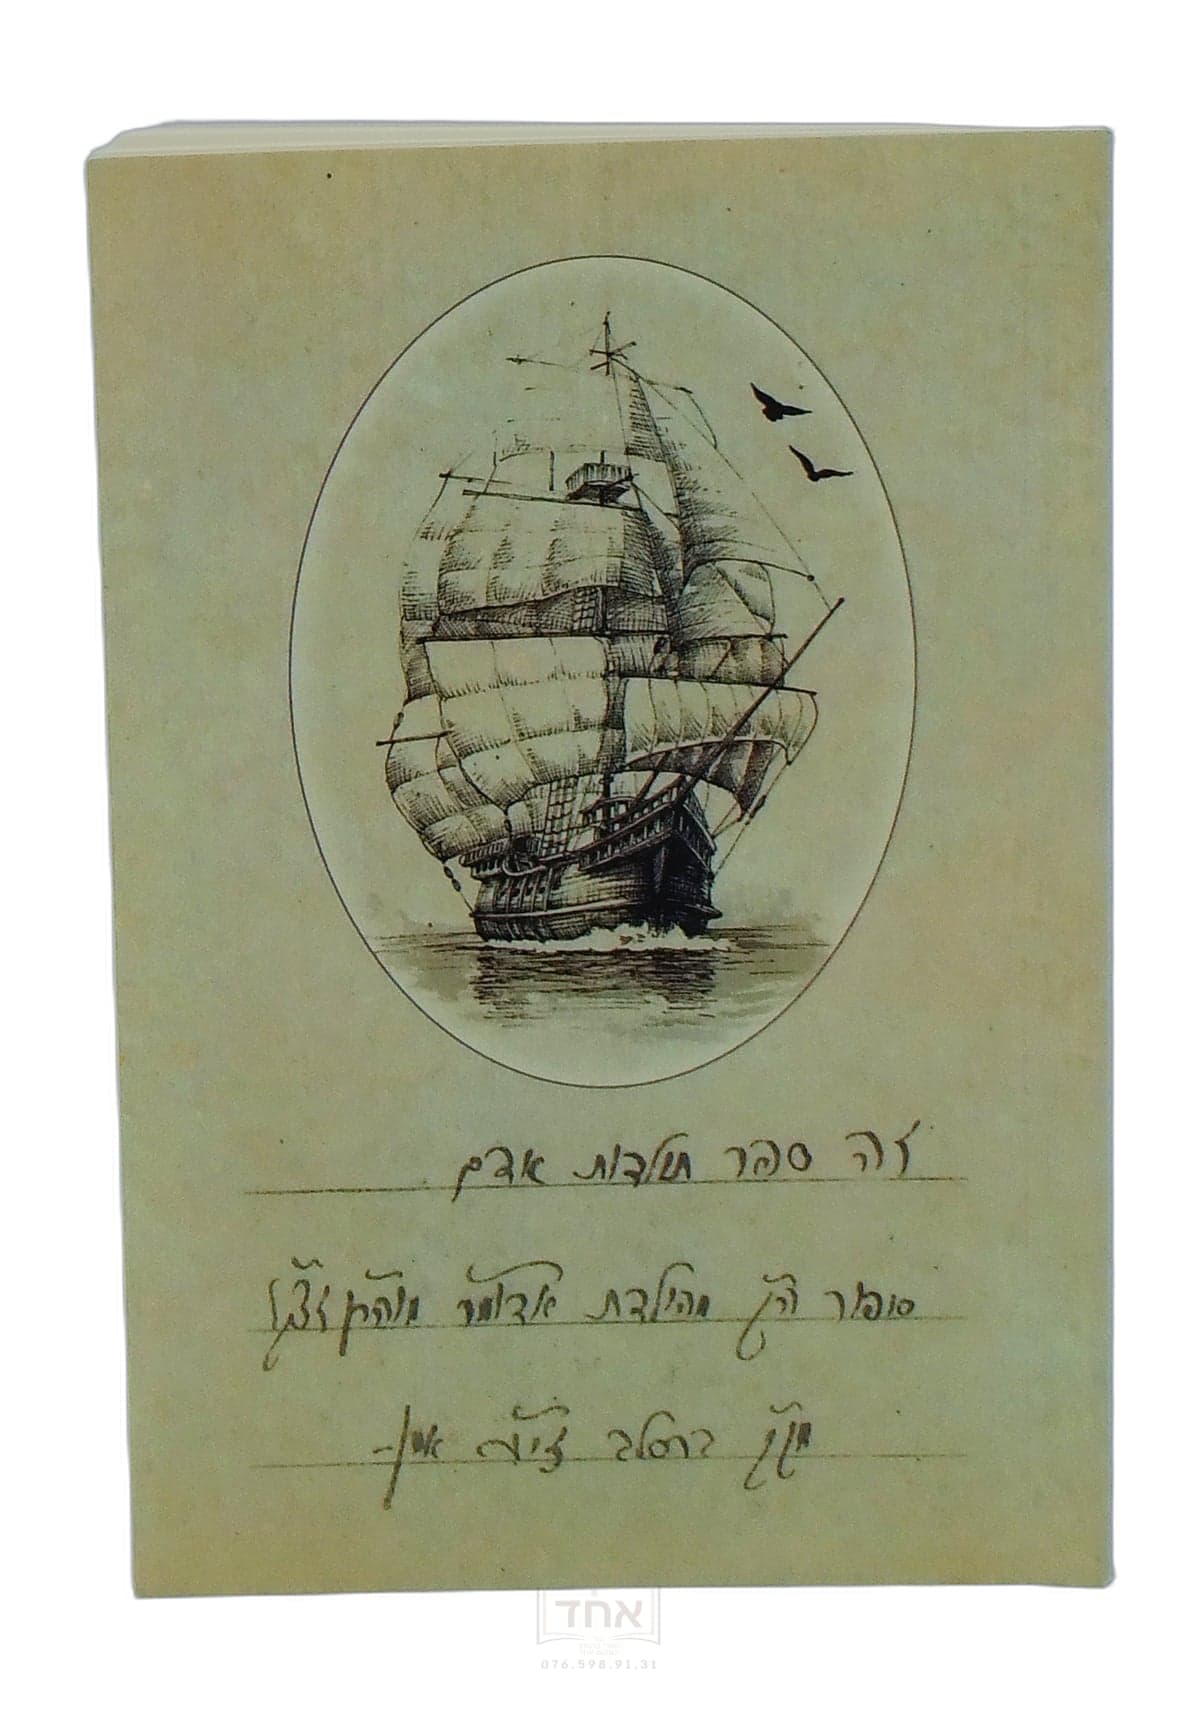 זה ספר תולדות אדם
סיפור מהולדת אדומ״ר מוהר״ן זצק״ל
מק״ק ברסלב זי״ע אמן-
אחד
076.598.91.31